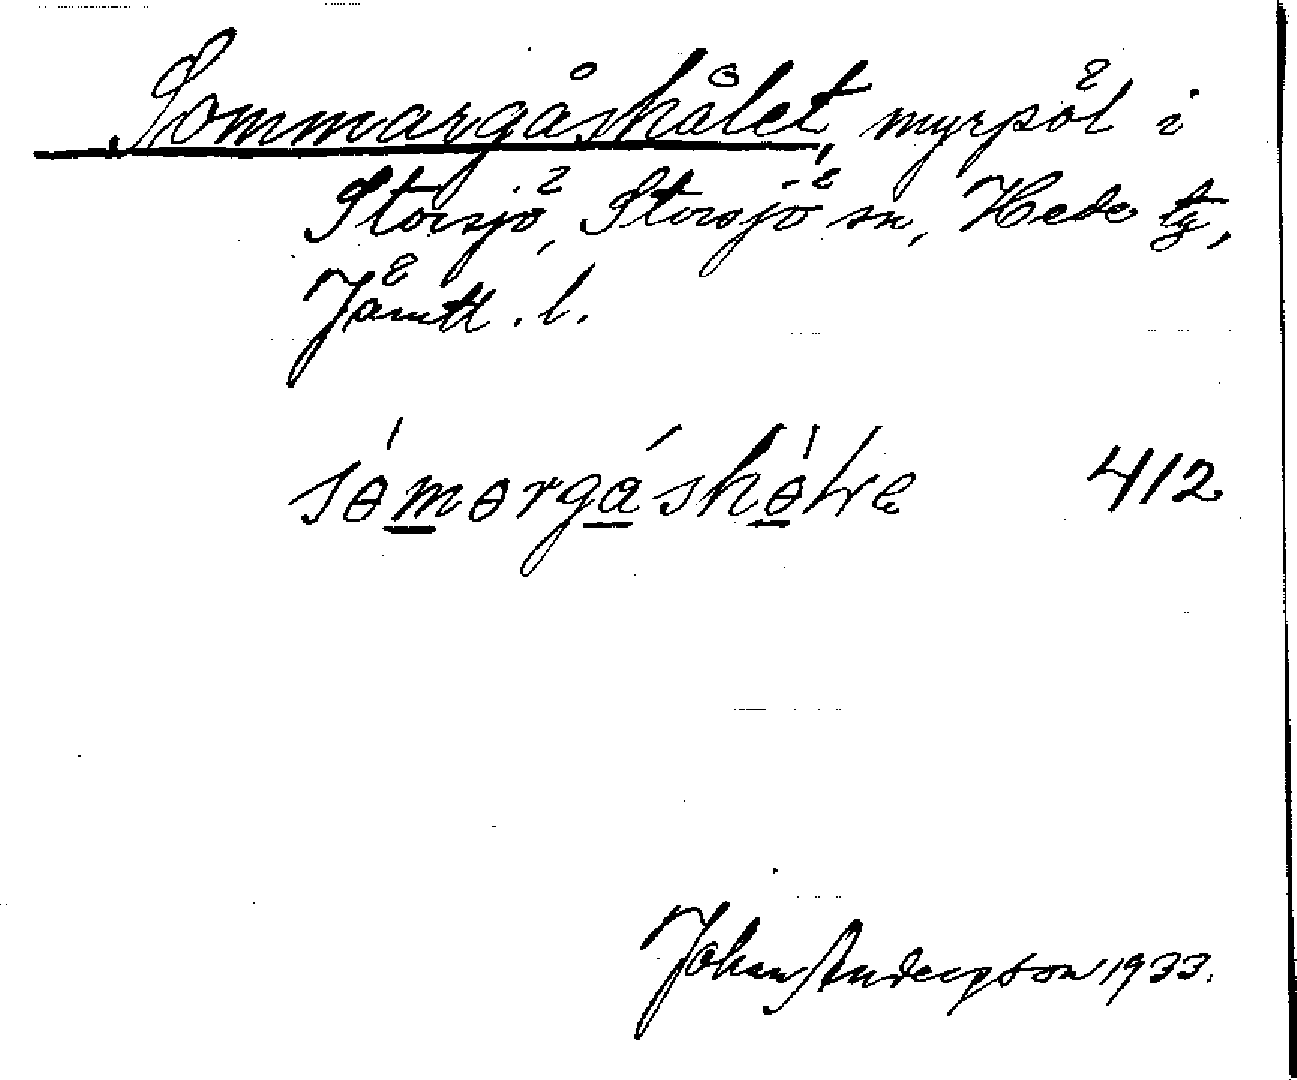 Sommargåshålet, myrpöl i
Storsjö, Storsjö sn, Hede tg,
Jämtl. l.
412
Johan Anderson 1933.